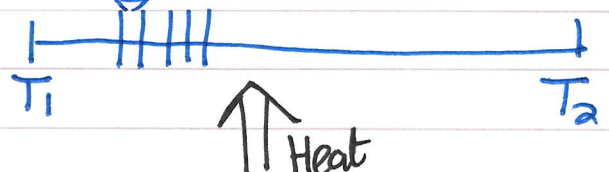 T₁ T₂
Heat